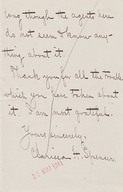 long, though the agents here
do not seem to know any-
thing about it.
Thank you for all the trouble
which you have taken about
it. I am most grateful.
Yours sincerely,
Spencer